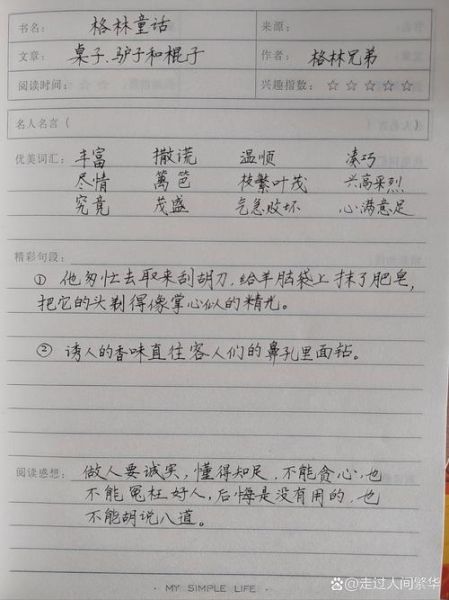 书名： 格林童话 来源：
文章： 桌子、驴子和棍子 作者： 格林兄弟
阅读时间： 兴趣指数：☆ ☆ ☆ ☆ ☆
名人名言（ ）
优美词汇： 丰富 撒谎 温顺 凑巧
尽情 篱笆 枝繁叶茂 兴高采烈
究竟 茂盛 气急败坏 心满意足
精彩句段：
① 他匆忙去取来刮胡刀，给羊脑袋上抹了肥皂，
把它的头剃得像掌心似的精光。
② 诱人的香味直往客人们的鼻孔里面钻。
阅读感想： 做人要诚实，懂得知足，不能贪心，也
不能冤枉好人，后悔是没有用的，也
不能胡说八道。
· MY SIMPLE LIFE ·
@走过人间繁华